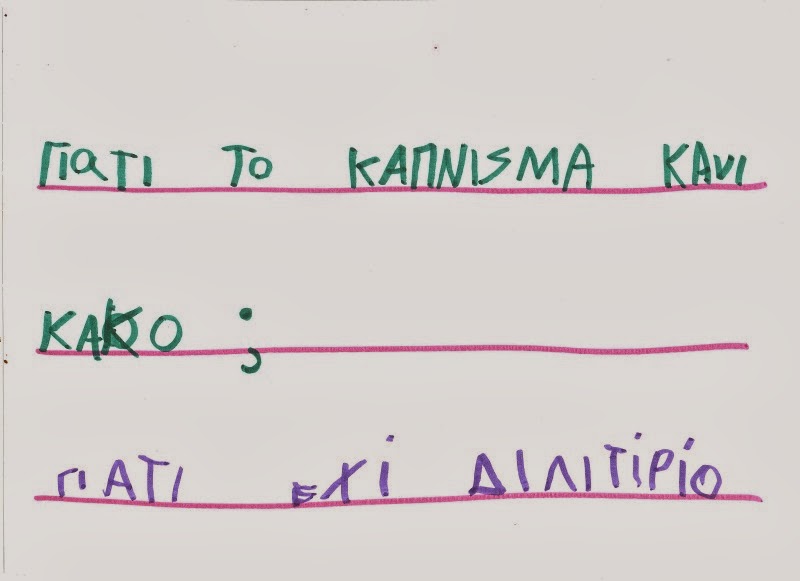 ΓιαΤΙ Το ΚΑΠΝΙSΜΑ ΚΑνΙ
ΚΑΚΟ ;
ΓΙΑΤΙ εΧί ΔΙΛΙΤίΡίΟ